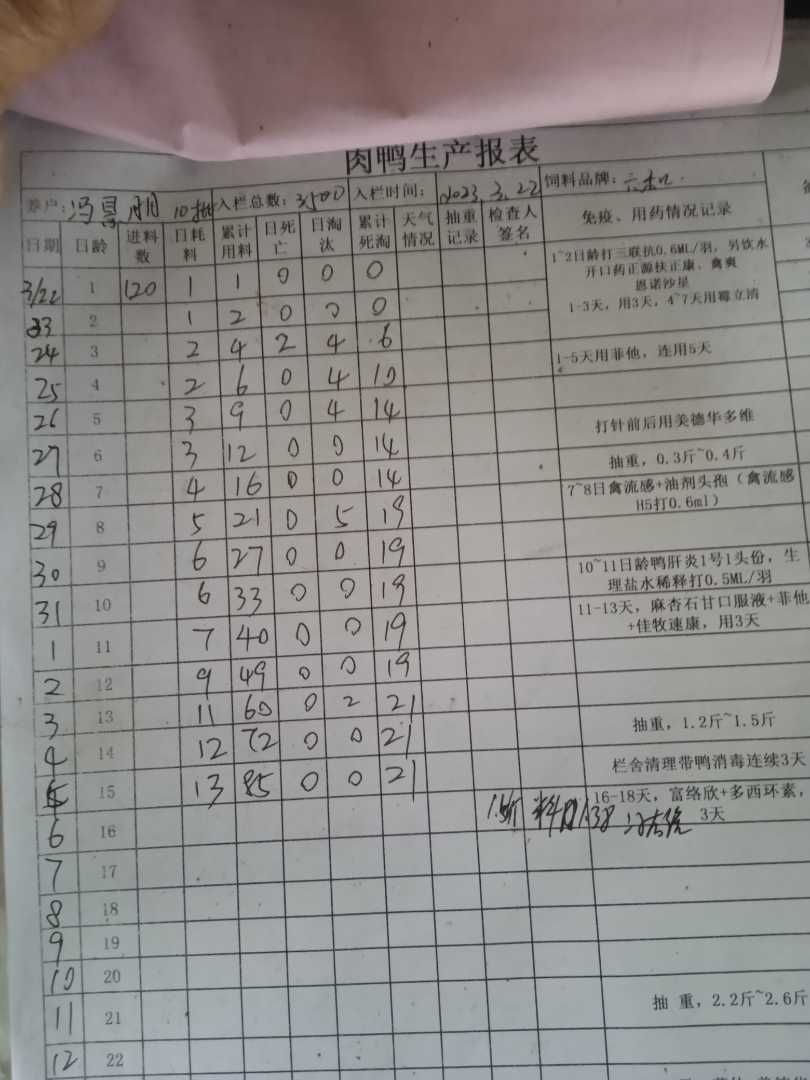 肉鸭生产报表
养户: 冯 10批 入栏总数: 3500 入栏时间: 2023.3.22 饲料品牌: 六和
日期 日龄 进料数 日耗料 累计用料 日死亡 日淘汰 累计死淘 天气情况 抽重记录 检查人签名 免疫、用药情况记录
3/22 1 120 1 1 0 0 0
23 2 1 2 0 0 0
24 3 2 4 2 4 6
25 4 2 6 0 4 10
26 5 3 9 0 4 14
27 6 3 12 0 0 14
28 7 4 16 0 0 14
29 8 5 21 0 5 19
30 9 6 27 0 0 19
31 10 6 33 0 0 19
1 11 7 40 0 0 19
2 12 9 49 0 0 19
3 13 11 60 0 2 21
4 14 12 72 0 0 21
5 15 13 85 0 0 21
6 16
7 17
8 18
9 19
10 20
11 21
12 22
1~2日龄打三联抗0.6ML/羽, 另饮水
开口药正源扶正康、禽爽
恩诺沙星
1-3天, 用3天, 4~7天用霉立清
1-5天用菲他, 连用5天
打针前后用美德华多维
抽重, 0.3斤~0.4斤
7~8日禽流感+油剂头孢 (禽流感
H5打0.6ml)
10~11日龄鸭肝炎1号1头份, 生
理盐水稀释打0.5ML/羽
11-13天, 麻杏石甘口服液+菲他
+佳牧速康, 用3天
抽重, 1.2斤~1.5斤
栏舍清理带鸭消毒连续3天
16-18天, 富络欣+多西环素,
3天
抽 重, 2.2斤~2.6斤